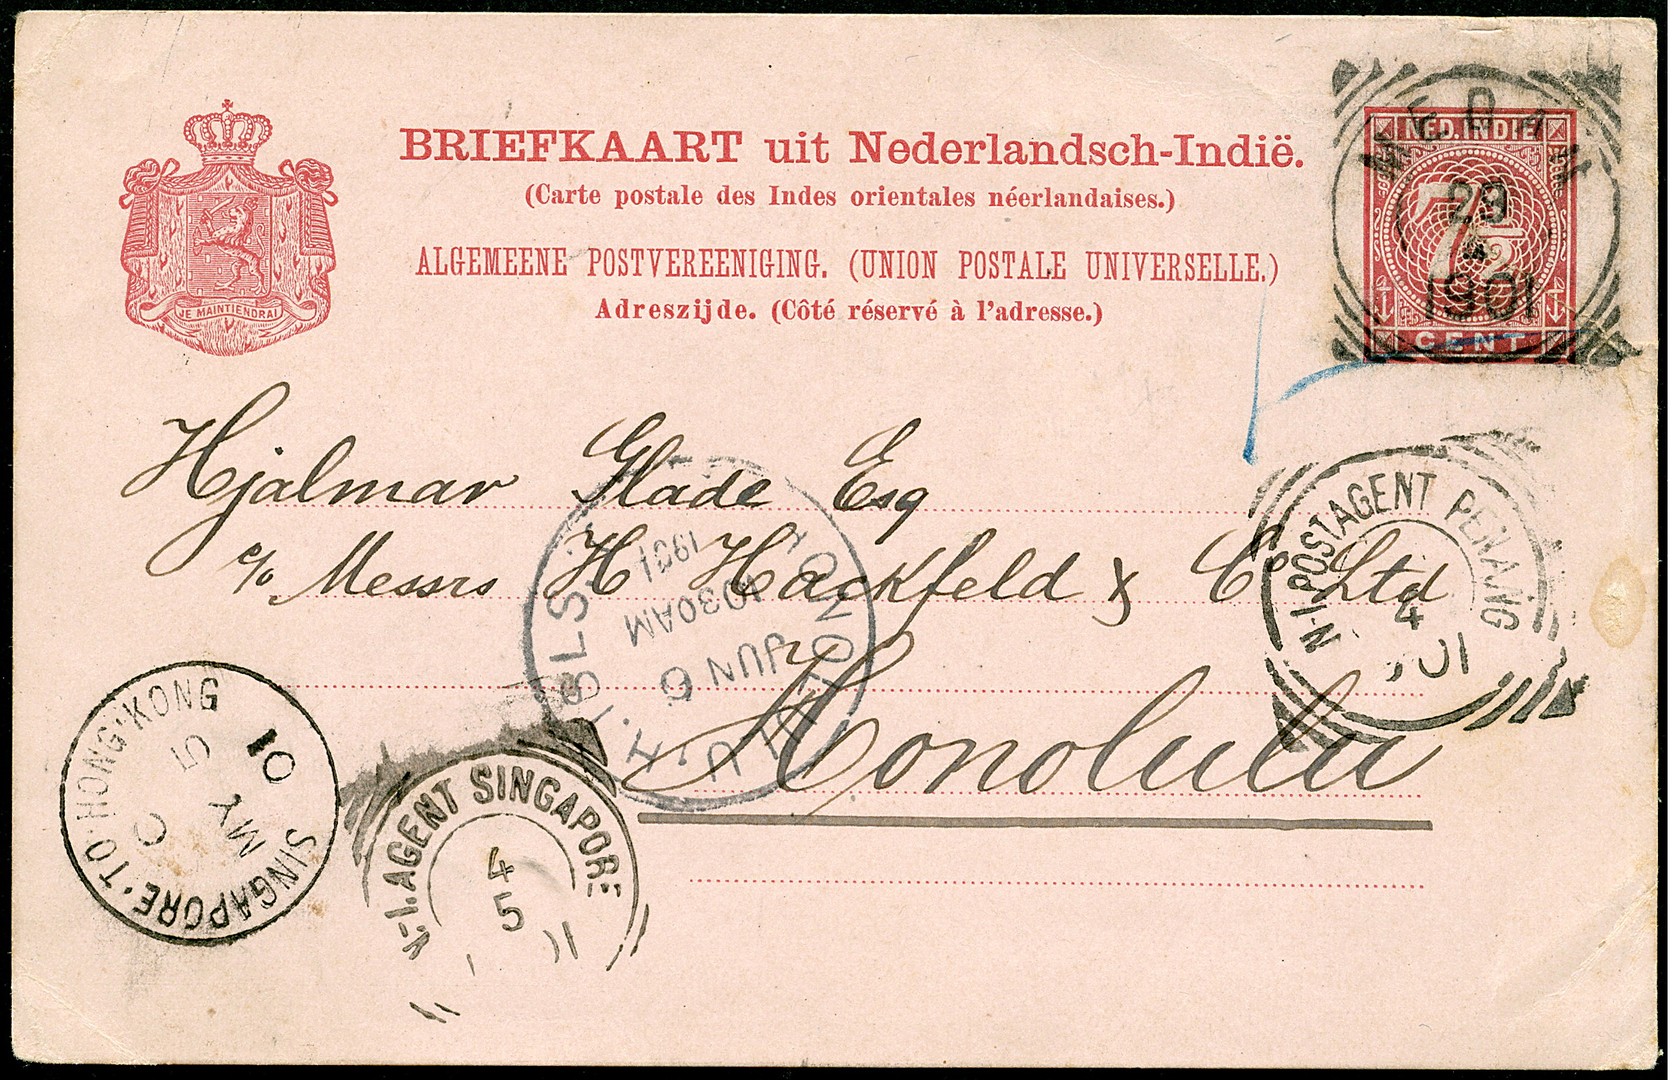 BRIEFKAART uit Nederlandsch-Indië.
(Carte postale des Indes orientales néerlandaises.)
ALGEMEENE POSTVEREENIGING. (UNION POSTALE UNIVERSELLE.)
Adreszijde. (Côté réservé à l'adresse.)
JE MAINTIENDRAI
NED. INDIE
7½
CENT
MEDAN
29
4
1901
Hjalmar Glade Esq
c/o Messrs H Hackfeld & Co Ltd
Honolulu
HONOLULU
H. ISLS.
JUN 6
1030AM
1901
N-I-POSTAGENT PENANG
4
01
N.I. AGENT SINGAPORE
4
5
01
SINGAPORE TO HONG KONG
C
MY
5
01